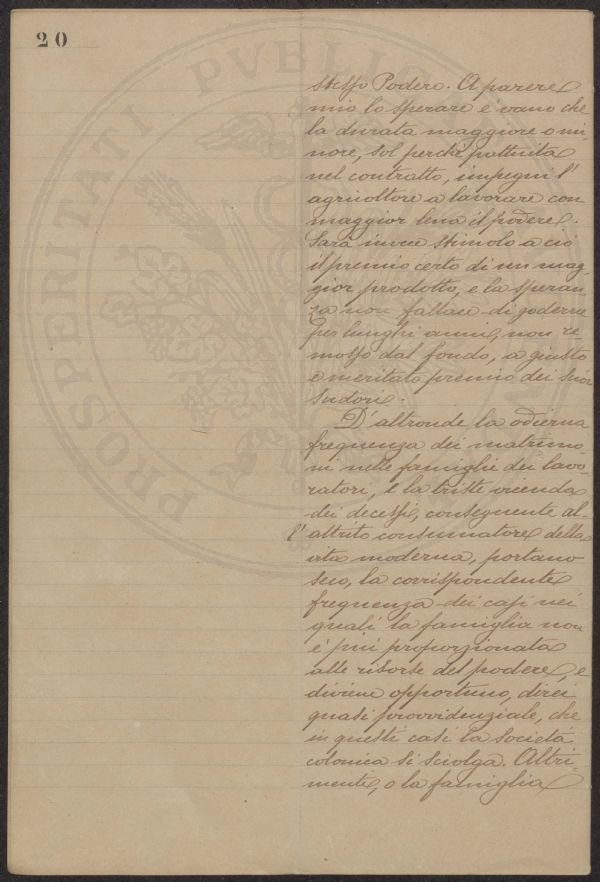 20
PROSPERITATI PVBLICAE
stesso Podere. A parere
mio lo sperare è vano che
la durata maggiore o mi-
nore, sol perchè pattuita
nel contratto, impegni l'
agricoltore a lavorare con
maggior lena il podere.
Sarà invece stimolo a ciò
il premio certo di un mag-
gior prodotto, e la speran
za non fallace di goderne
per lunghi anni, non re-
mosso dal fondo, a giusto
e meritato premio dei suoi
sudori.
D'altronde la odierna
frequenza dei matrimo-
ni nelle famiglie dei lavo-
ratori, e la triste vicenda
dei decessi, conseguente al-
l'attrito consumatore della
vita moderna, portano
seco, la corrispondente
frequenza dei casi nei
quali la famiglia non
è più proporzionata
alle risorse del podere, e
diviene opportuno, direi
quasi provvidenziale, che
in questi casi la Società
colonica si sciolga. Altri-
mente, o la famiglia